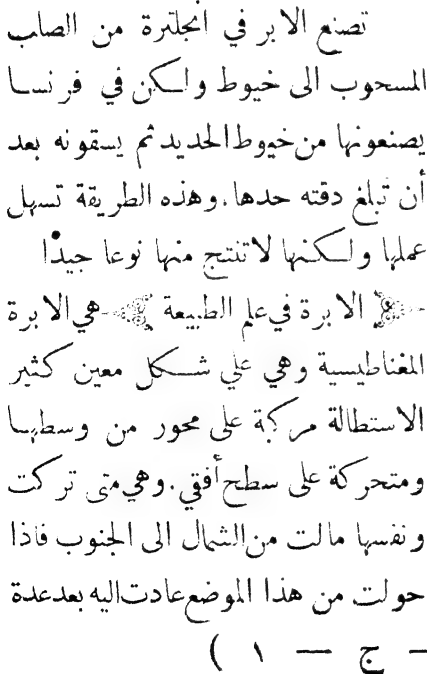 تصنع الابر في انجلترة من الصلب
المسحوب الى خيوط ولكن في فرنسا
يصنعونها من خيوط الحديد ثم يسقونه بعد
أن تبلغ دقته حدها. وهذه الطريقة تسهل
عملها ولكنها لا تنتج منها نوعا جيدًا
﴿ الابرة في علم الطبيعة ﴾ هي الابرة
المغناطيسية وهي علي شكل معين كثير
الاستطالة مركبة على محور من وسطها
ومتحركة على سطح أفقي. وهي متى تركت
ونفسها مالت من الشمال الى الجنوب فاذا
حولت من هذا الموضع عادت اليه بعد عدة
– ج — ١ )